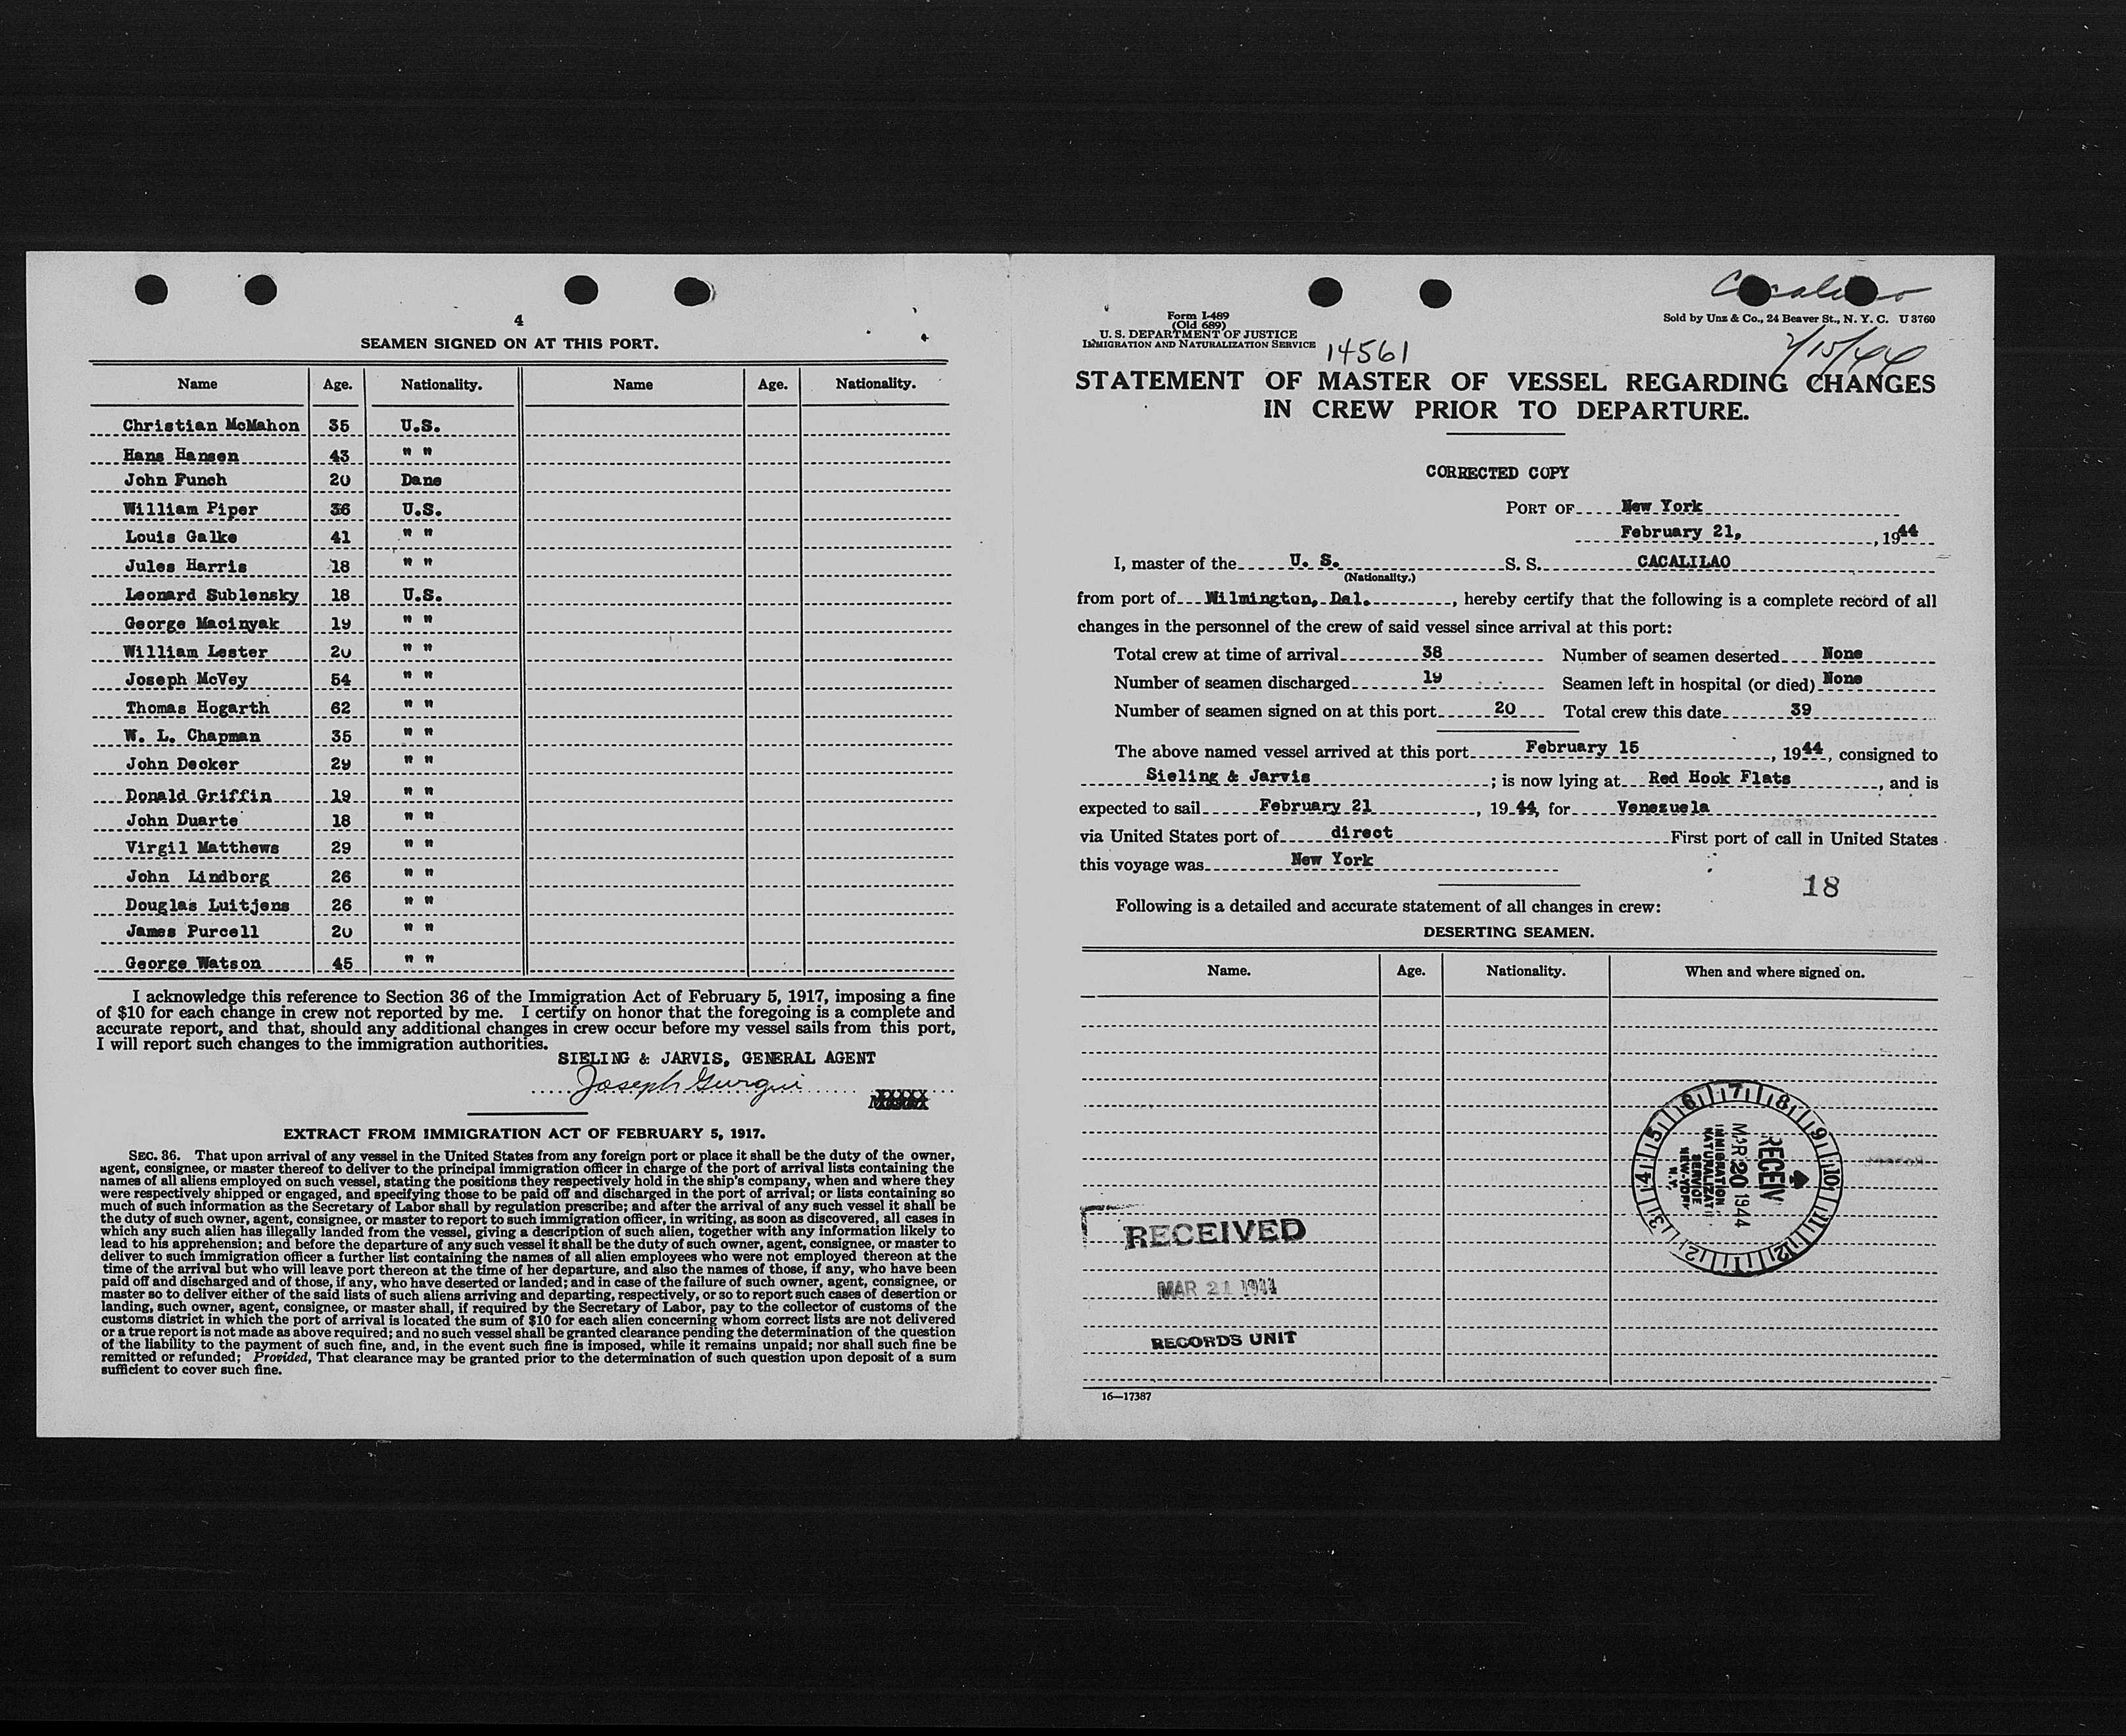 4
SEAMEN SIGNED ON AT THIS PORT.
Name Age. Nationality. Name Age. Nationality.
Christian McMahon 35 U.S.
Hans Hansen 43 " "
John Funch 20 Dane
William Piper 36 U.S.
Louis Galke 41 " "
Jules Harris 18 " "
Leonard Sublensky 18 U.S.
George Macinyak 19 " "
William Lester 20 " "
Joseph McVey 54 " "
Thomas Hogarth 62 " "
W. L. Chapman 35 " "
John Decker 29 " "
Donald Griffin 19 " "
John Duarte 18 " "
Virgil Matthews 29 " "
John Lindborg 26 " "
Douglas Luitjens 26 " "
James Purcell 20 " "
George Watson 45 " "
I acknowledge this reference to Section 36 of the Immigration Act of February 5, 1917, imposing a fine
of $10 for each change in crew not reported by me. I certify on honor that the foregoing is a complete and
accurate report, and that, should any additional changes in crew occur before my vessel sails from this port,
I will report such changes to the immigration authorities.
SIELING & JARVIS, GENERAL AGENT
Joseph
EXTRACT FROM IMMIGRATION ACT OF FEBRUARY 5, 1917.
SEC. 36. That upon arrival of any vessel in the United States from any foreign port or place it shall be the duty of the owner,
agent, consignee, or master thereof to deliver to the principal immigration officer in charge of the port of arrival lists containing the
names of all aliens employed on such vessel, stating the positions they respectively hold in the ship's company, when and where they
were respectively shipped or engaged, and specifying those to be paid off and discharged in the port of arrival; or lists containing so
much of such information as the Secretary of Labor shall by regulation prescribe; and after the arrival of any such vessel it shall be
the duty of such owner, agent, consignee, or master to report to such immigration officer, in writing, as soon as discovered, all cases in
which any such alien has illegally landed from the vessel, giving a description of such alien, together with any information likely to
lead to his apprehension; and before the departure of any such vessel it shall be the duty of such owner, agent, consignee, or master to
deliver to such immigration officer a further list containing the names of all alien employees who were not employed thereon at the
time of the arrival but who will leave port thereon at the time of her departure, and also the names of those, if any, who have been
paid off and discharged and of those, if any, who have deserted or landed; and in case of the failure of such owner, agent, consignee, or
master so to deliver either of the said lists of such aliens arriving and departing, respectively, or so to report such cases of desertion or
landing, such owner, agent, consignee, or master shall, if required by the Secretary of Labor, pay to the collector of customs of the
customs district in which the port of arrival is located the sum of $10 for each alien concerning whom correct lists are not delivered
or a true report is not made as above required; and no such vessel shall be granted clearance pending the determination of the question
of the liability to the payment of such fine, and, in the event such fine is imposed, while it remains unpaid; nor shall such fine be
remitted or refunded; Provided, That clearance may be granted prior to the determination of such question upon deposit of a sum
sufficient to cover such fine.
Cacalilao
Form I-489
(Old 689)
U. S. DEPARTMENT OF JUSTICE
IMMIGRATION AND NATURALIZATION SERVICE
Sold by Unz & Co., 24 Beaver St., N. Y. C. U 3760
14561
2/15/44
STATEMENT OF MASTER OF VESSEL REGARDING CHANGES
IN CREW PRIOR TO DEPARTURE.
CORRECTED COPY
PORT OF New York
February 21, , 1944
I, master of the U. S. S. S. CACALILAO
(Nationality.)
from port of Wilmington, Del. , hereby certify that the following is a complete record of all
changes in the personnel of the crew of said vessel since arrival at this port:
Total crew at time of arrival 38 Number of seamen deserted None
Number of seamen discharged 19 Seamen left in hospital (or died) None
Number of seamen signed on at this port 20 Total crew this date 39
The above named vessel arrived at this port February 15 , 1944, consigned to
Sieling & Jarvis ; is now lying at Red Hook Flats , and is
expected to sail February 21 , 1944, for Venezuela
via United States port of direct First port of call in United States
this voyage was New York
18
Following is a detailed and accurate statement of all changes in crew:
DESERTING SEAMEN.
Name. Age. Nationality. When and where signed on.
RECEIVED
MAR 21 1944
RECORDS UNIT
MAR 20 1944
IMMIGRATION
SERVICE
N.Y.
1 2 3 4 5 6 7 8 9 10 11 12
16—17387